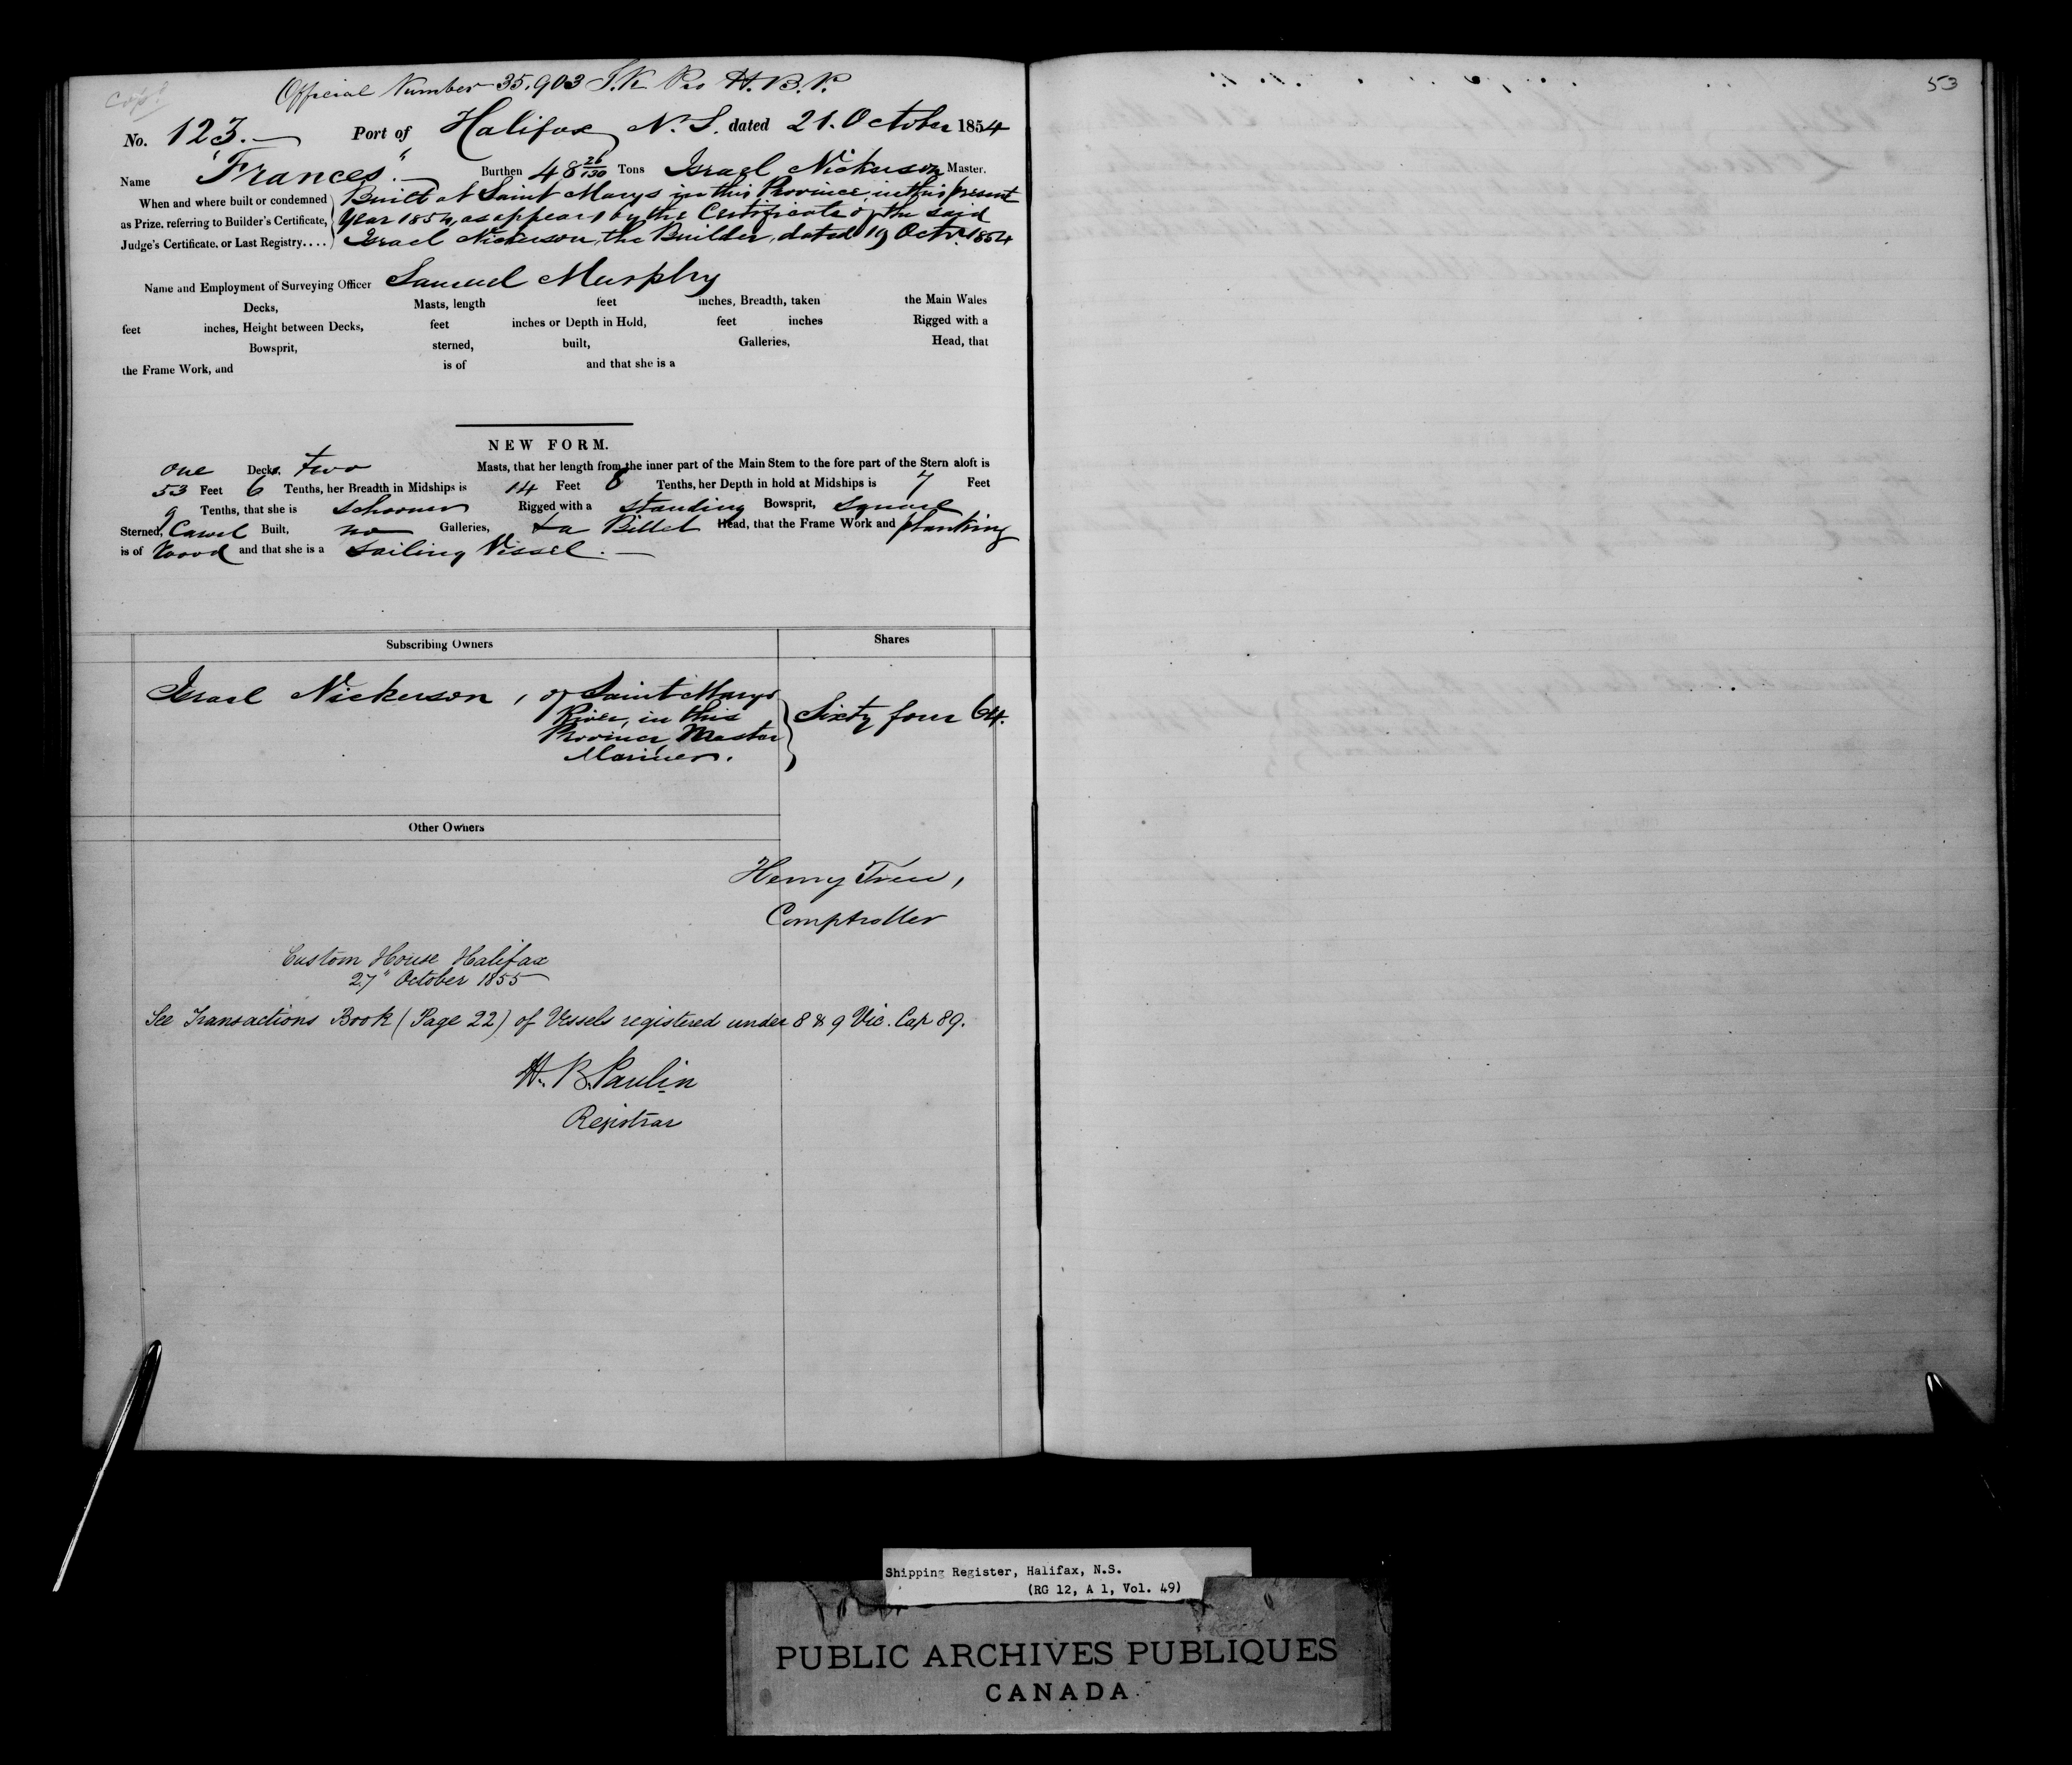 Copy
Official Number 35.903 S.K Pro H.B.P.
53
No. 123.— Port of Halifax N.S. dated 21. October 1854
Name "Frances".— Burthen 48 26/130 Tons Israel Nickerson Master.
When and where built or condemned as Prize, referring to Builder's Certificate, Judge's Certificate, or Last Registry....
Built at Saint Marys in this Province, in this present
Year 1854, as appears by the Certificate of the said
Israel Nickerson, the Builder, dated 19 Octr. 1854
Name and Employment of Surveying Officer Samuel Murphy
Decks, Masts, length feet inches, Breadth, taken the Main Wales
feet inches, Height between Decks, feet inches or Depth in Hold, feet inches Rigged with a
Bowsprit, sterned, built, Galleries, Head, that
the Frame Work, and is of and that she is a
NEW FORM.
one Deck, two Masts, that her length from the inner part of the Main Stem to the fore part of the Stern aloft is
53 Feet 6 Tenths, her Breadth in Midships is 14 Feet 8 Tenths, her Depth in hold at Midships is 7 Feet
9 Tenths, that she is Schooner Rigged with a standing Bowsprit, square
Sterned, Carvel Built, no Galleries, & a Billet Head, that the Frame Work and planking
is of Wood and that she is a Sailing Vessel.—
Subscribing Owners Shares
Israel Nickerson, of Saint Marys
River, in this
Province, Master
Mariner.
Sixty four 64.
Other Owners
Henry Trew,
Comptroller
Custom House Halifax
27" October 1855
See Transactions Book (Page 22) of Vessels registered under 8 & 9 Vic. Cap 89.
H. B. Paulin
Registrar
Shipping Register, Halifax, N.S.
(RG 12, A 1, Vol. 49)
PUBLIC ARCHIVES PUBLIQUES
CANADA